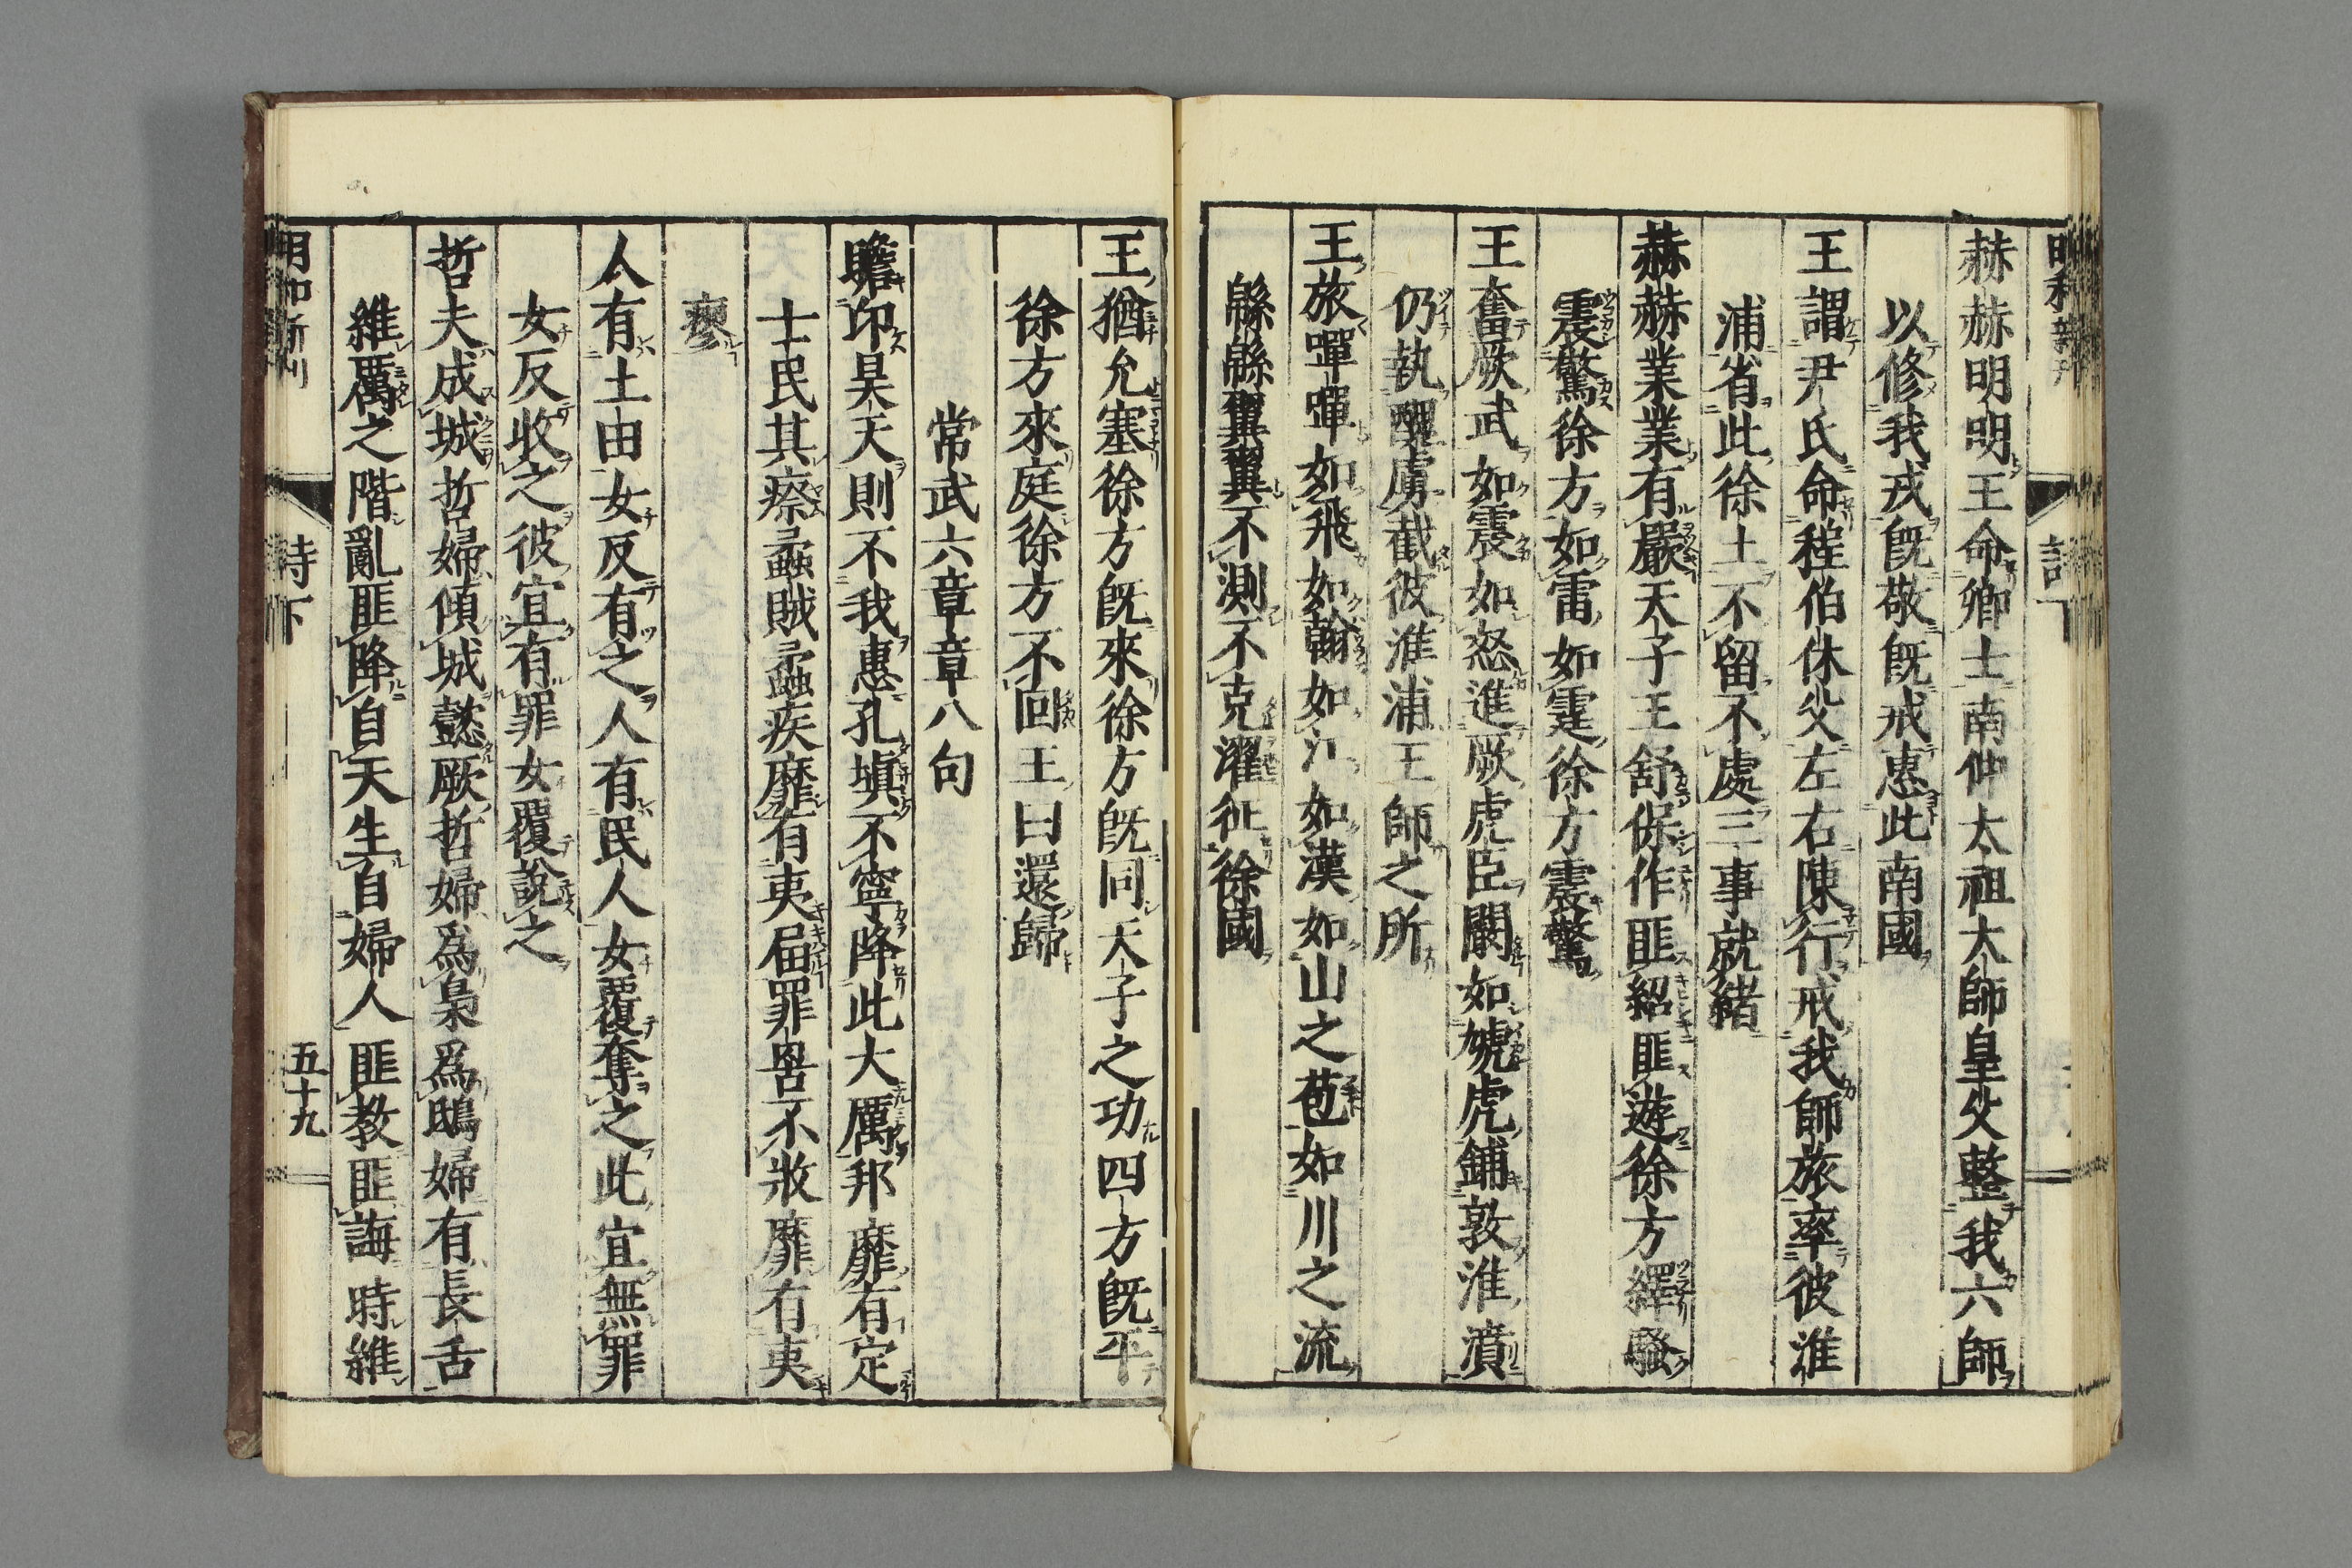 赫赫明明王命卿士南仲太祖大師皇父整我六師
以修我戎既敬既戒惠此南國
王謂尹氏命程伯休父左右陳行戒我師旅率彼淮
浦省此徐土不留不處三事就緒
赫赫業業有嚴天子王舒保作匪紹匪遊徐方繹騷
震驚徐方如雷如霆徐方震驚
王奮厥武如震如怒進厥虎臣闞如虓虎鋪敦淮濆
仍執醜虜截彼淮浦王師之所
王旅嘽嘽如飛如翰如江如漢如山之苞如川之流
緜緜翼翼不測不克濯征徐國
王猶允塞徐方既來徐方既同天子之功四方既平
徐方來庭徐方不回王曰還歸
常武六章章八句
瞻卬昊天則不我惠孔塡不寧降此大厲邦靡有定
士民其瘵蟊賊蟊疾靡有夷屆罪罟不收靡有夷
瘳
人有土田女反有之人有民人女覆奪之此宜無罪
女反收之彼宜有罪女覆說之
哲夫成城哲婦傾城懿厥哲婦爲梟爲鴟婦有長舌
維厲之階亂匪降自天生自婦人匪教匪誨時維
詩下
五十九